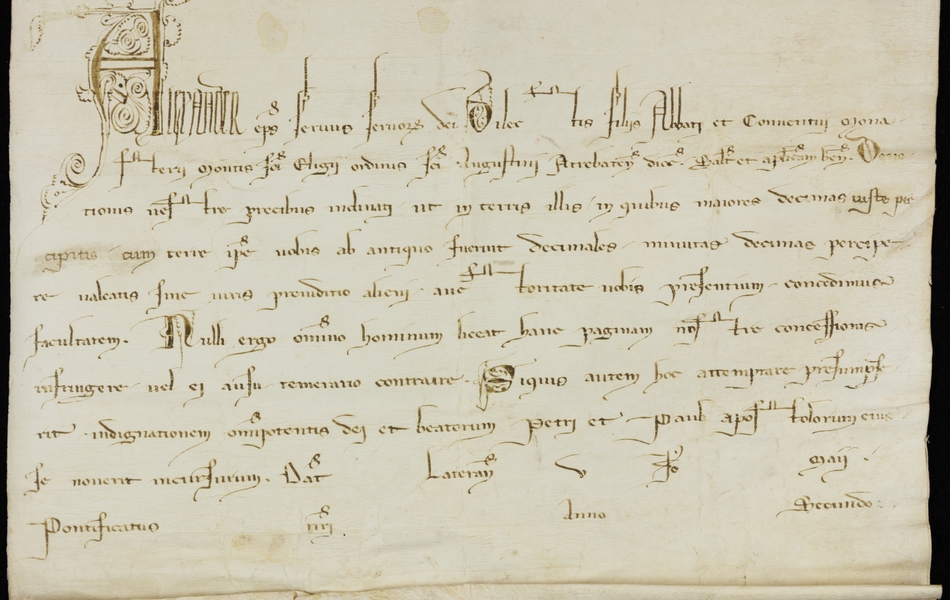 Alexander eps seruus seruoꝝ dei Dilectis filiis Abbati et Conuentui Mona
sterii Montis sci Eligii ordinis sci Augustini Atrebateñ dioc Salt et aplicam ben Deuo
tionis uestre precibus inclinati ut in terris illis in quibus maiores decimas iuste per
cipitis cum terre ipse uobis ab antiquo fuerint decimales minutas decimas percipe
re ualeatis sine iuris preiuditio alieni auctoritate uobis presentium concedimus
facultatem. Nulli ergo omino hominum liceat hanc paginam nostre concessionis
infringere uel ei ausu temerario contraire. Siquis autem hoc attemptare presumpse
rit indignationem omipotentis dei et beatorum Petri et Pauli apostolorum eius
se nouerit incursurum. Dat Laterañ v Maii
Pontificatus nri Anno Secundo.